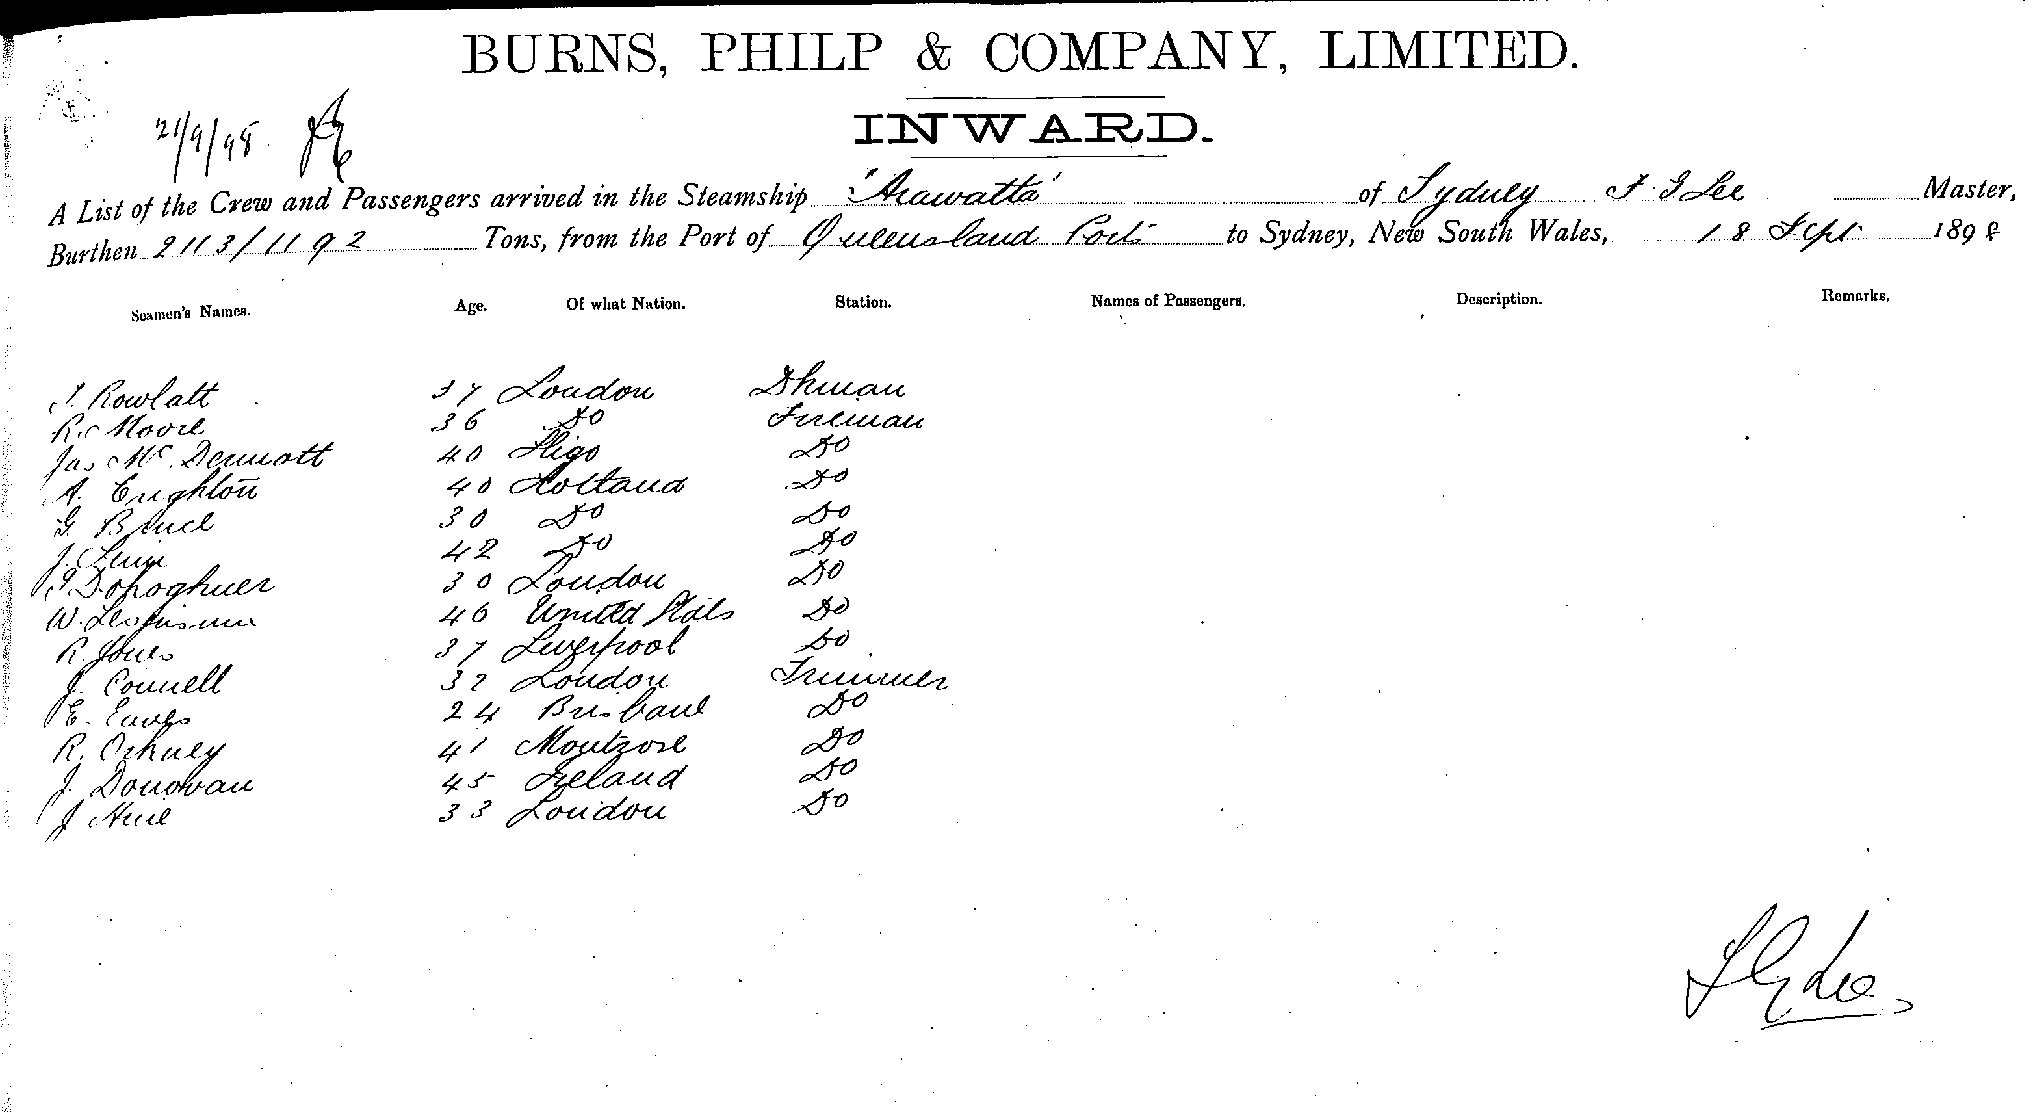 BURNS, PHILP & COMPANY, LIMITED.
INWARD.
21/9/98
A List of the Crew and Passengers arrived in the Steamship "Arawatta" of Sydney F. G Lee Master,
Burthen 2113/1192 Tons, from the Port of Queensland Ports to Sydney, New South Wales, 18 Sept 1898
Seamen's Names. Age. Of what Nation. Station. Names of Passengers. Description. Remarks.
J. Rowlatt 37 London Dkman
R. Moore 36 Do Fireman
Jas McDermott 40 Sligo Do
A. Crighton 40 Holland Do
G. Bruce 30 Do Do
J. 42 Do Do
Donoghuer 30 London Do
W. 46 United States Do
R. Jones 37 Liverpool Do
J. Connell 32 London Trimmer
E. Eaves 24 Brisbane Do
R. Orkney 41 Montrose Do
J. Donovan 45 Ireland Do
J 33 London Do
F G Lee